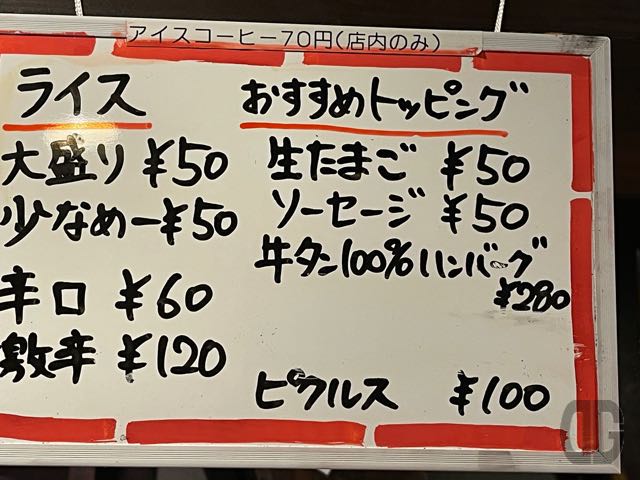 アイスコーヒー70円(店内のみ)
ライス
大盛り ¥50
少なめ -¥50
辛口 ¥60
激辛 ¥120
おすすめトッピング
生たまご ¥50
ソーセージ ¥50
牛タン100%ハンバーグ
¥280
ピクルス ¥100